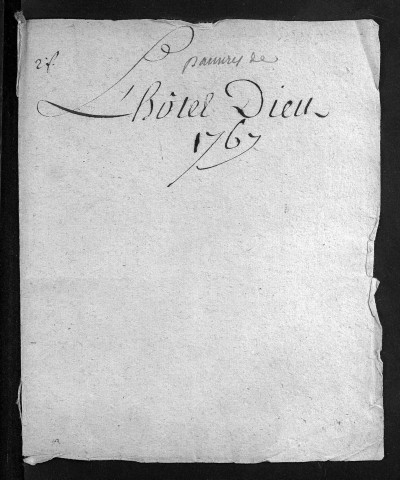 2 f.
pauvres de
L'hôtel Dieu
1767